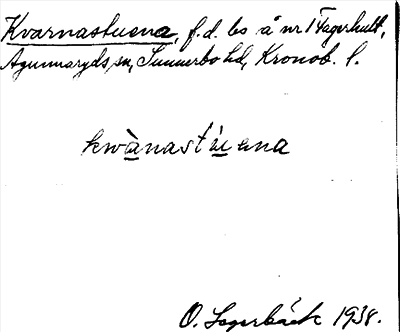 Kvarnastuena, f.d. bs å nr 1 Fagerhult,
Agunnaryds sn, Sunnerbo hd, Kronob. l.
kwànastúena
O. Lagerbäck 1938.